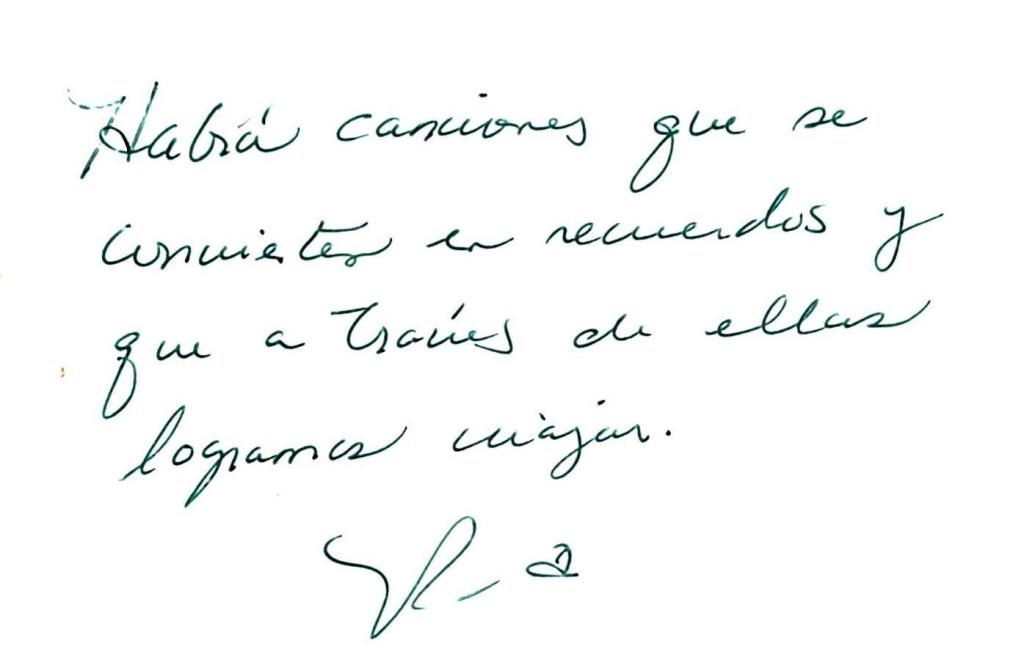 Habrá canciones que se
convierten en recuerdos y
que a través de ellas
logramos viajar.